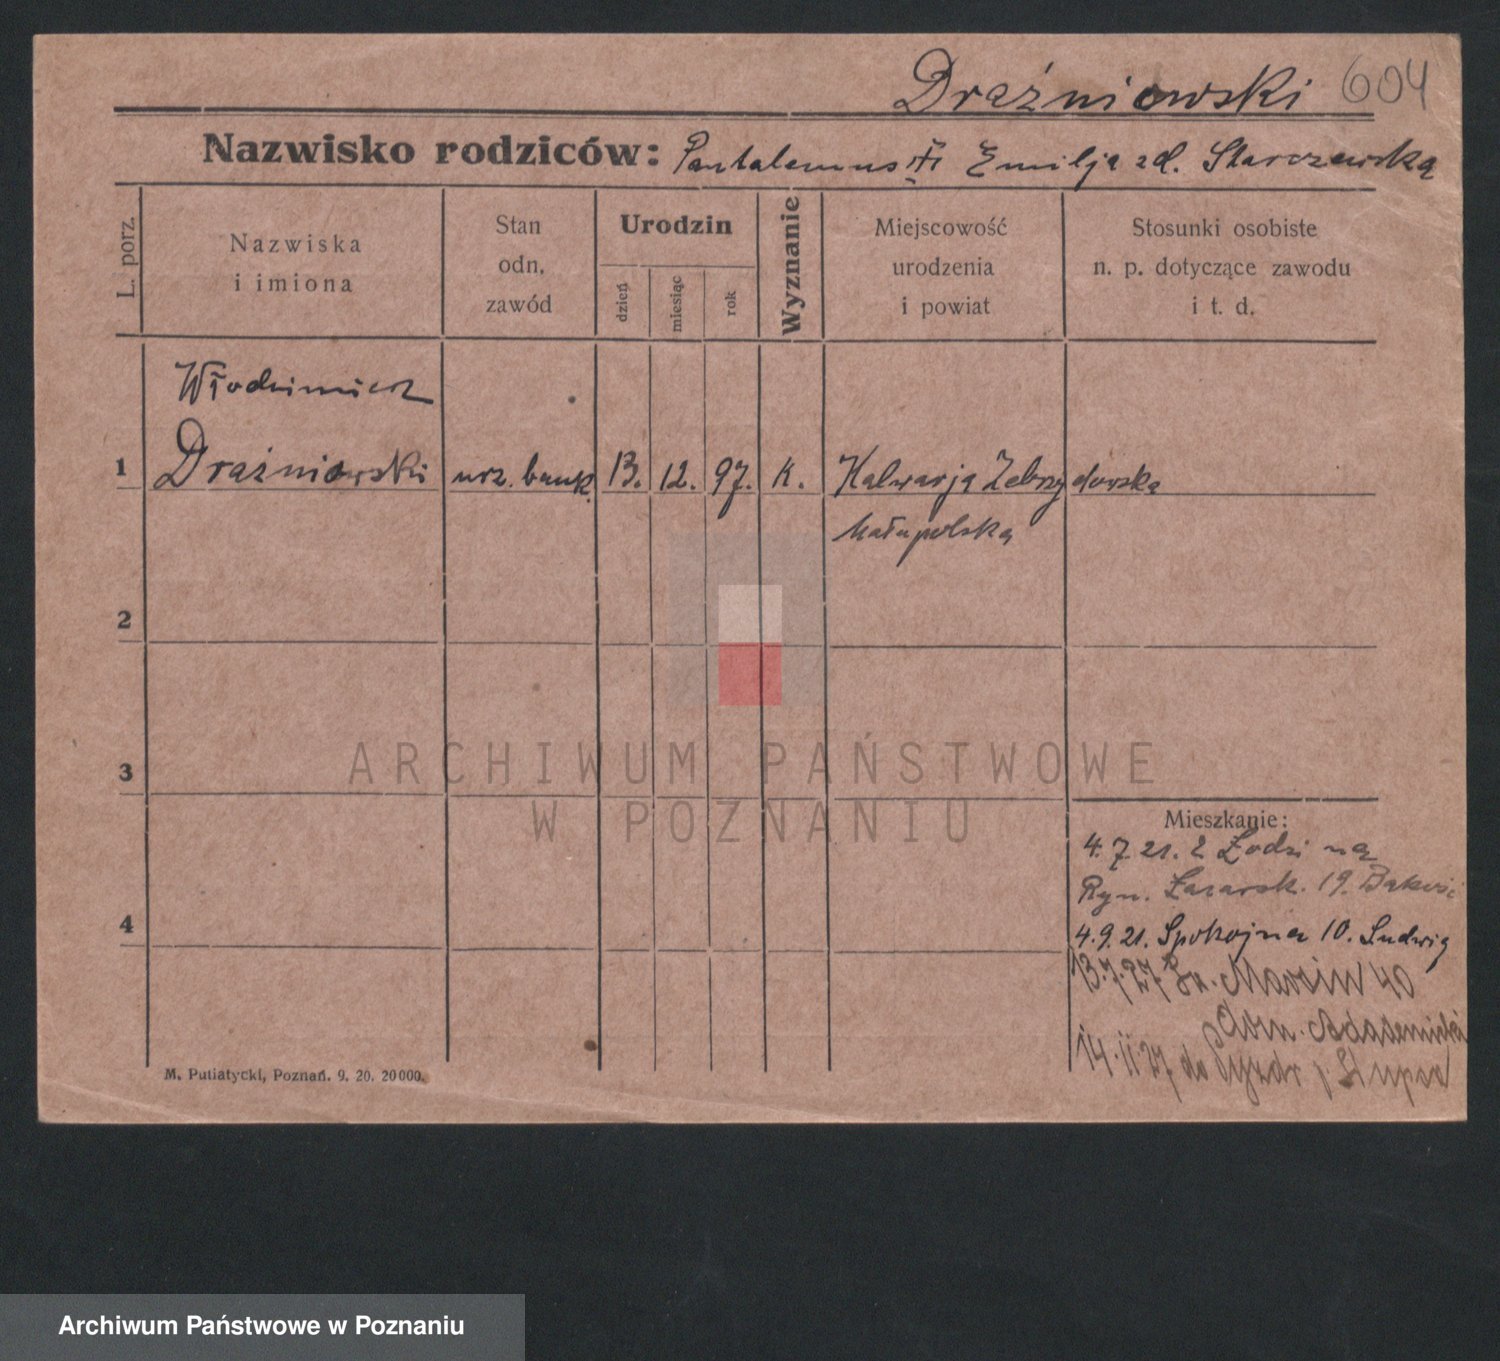 Draźniowski 604
Nazwisko rodziców: Pantaleimus i Emilja zd. Starczewska
L. porz.
Nazwiska
i imiona
Stan
odn.
zawód
Urodzin
dzień
miesiąc
rok
Wyznanie
Miejscowość
urodzenia
i powiat
Stosunki osobiste
n. p. dotyczące zawodu
i t. d.
Włodzimierz
1 Draźniowski urz. bank. 13. 12. 97. K. Kalwarja Zebrzydowska
Małopolska
2
3
ARCHIWUM PAŃSTWOWE
W POZNANIU
Mieszkanie:
4.7.21. z Łodzi na
Ryn. Łazarsk. 19.
4
4.9.21. Spokojna 10. Ludwig
13.7.27 Św. Marcin 40
Dom Akademicki
14.11.27 do
M. Putiatycki, Poznań. 9. 20. 20000.
Archiwum Państwowe w Poznaniu